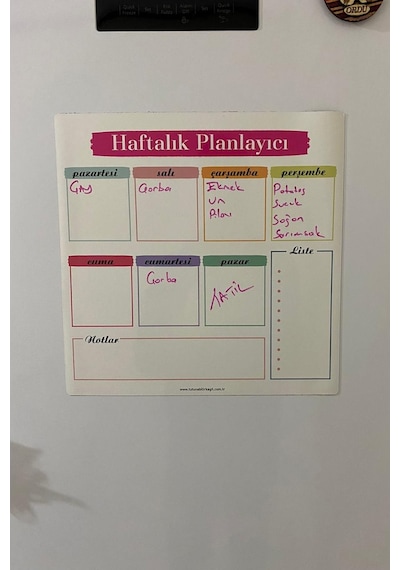 ORDU
Haftalık Planlayıcı
pazartesi
salı
çarşamba
perşembe
Çay
Çorba
Ekmek
Un
Pilav
Patates
Sucuk
Soğan
Sarımsak
cuma
cumartesi
pazar
Liste
Çorba
TATİL
Notlar